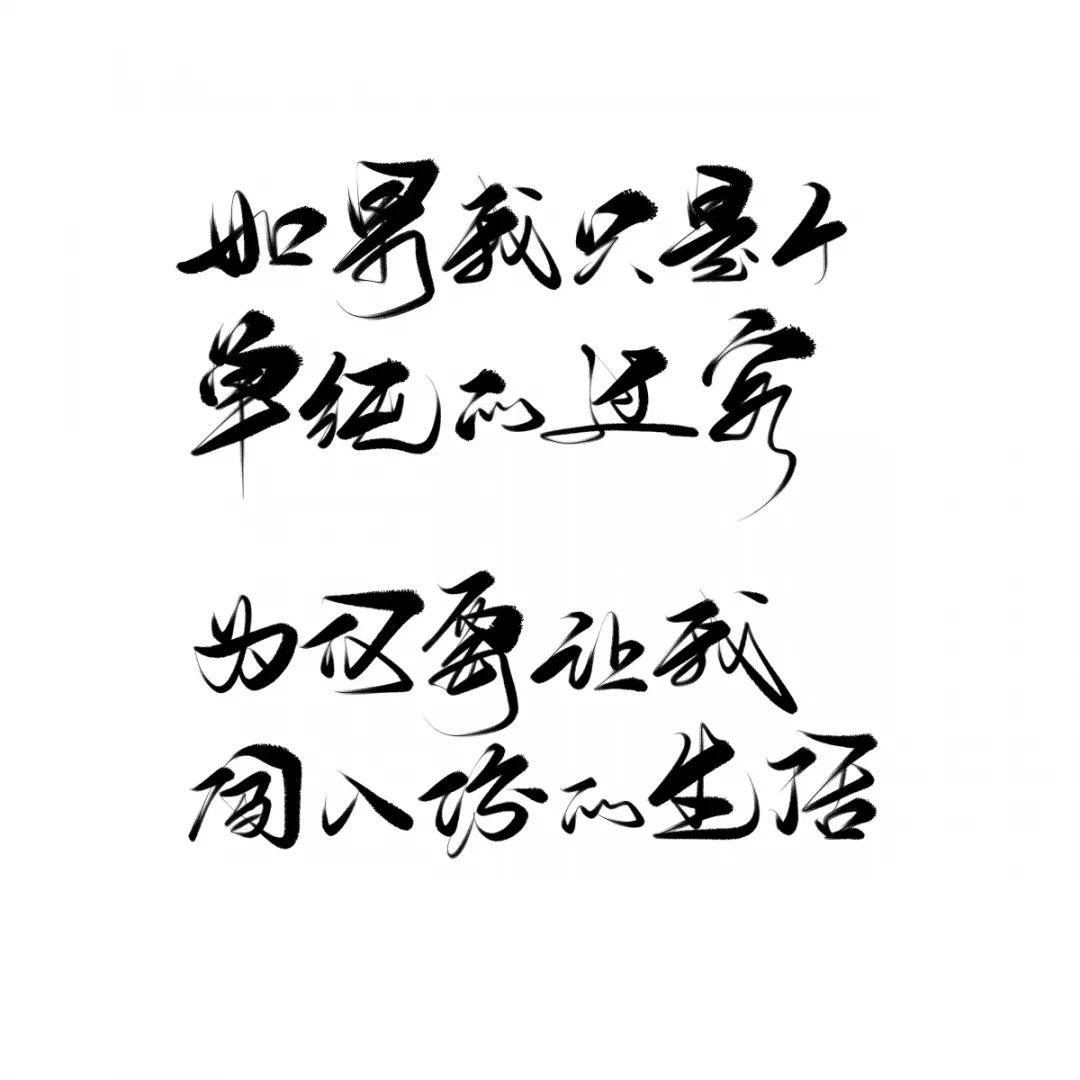 如果我只是个
单纯的过客
为何要让我
闯入你的生活